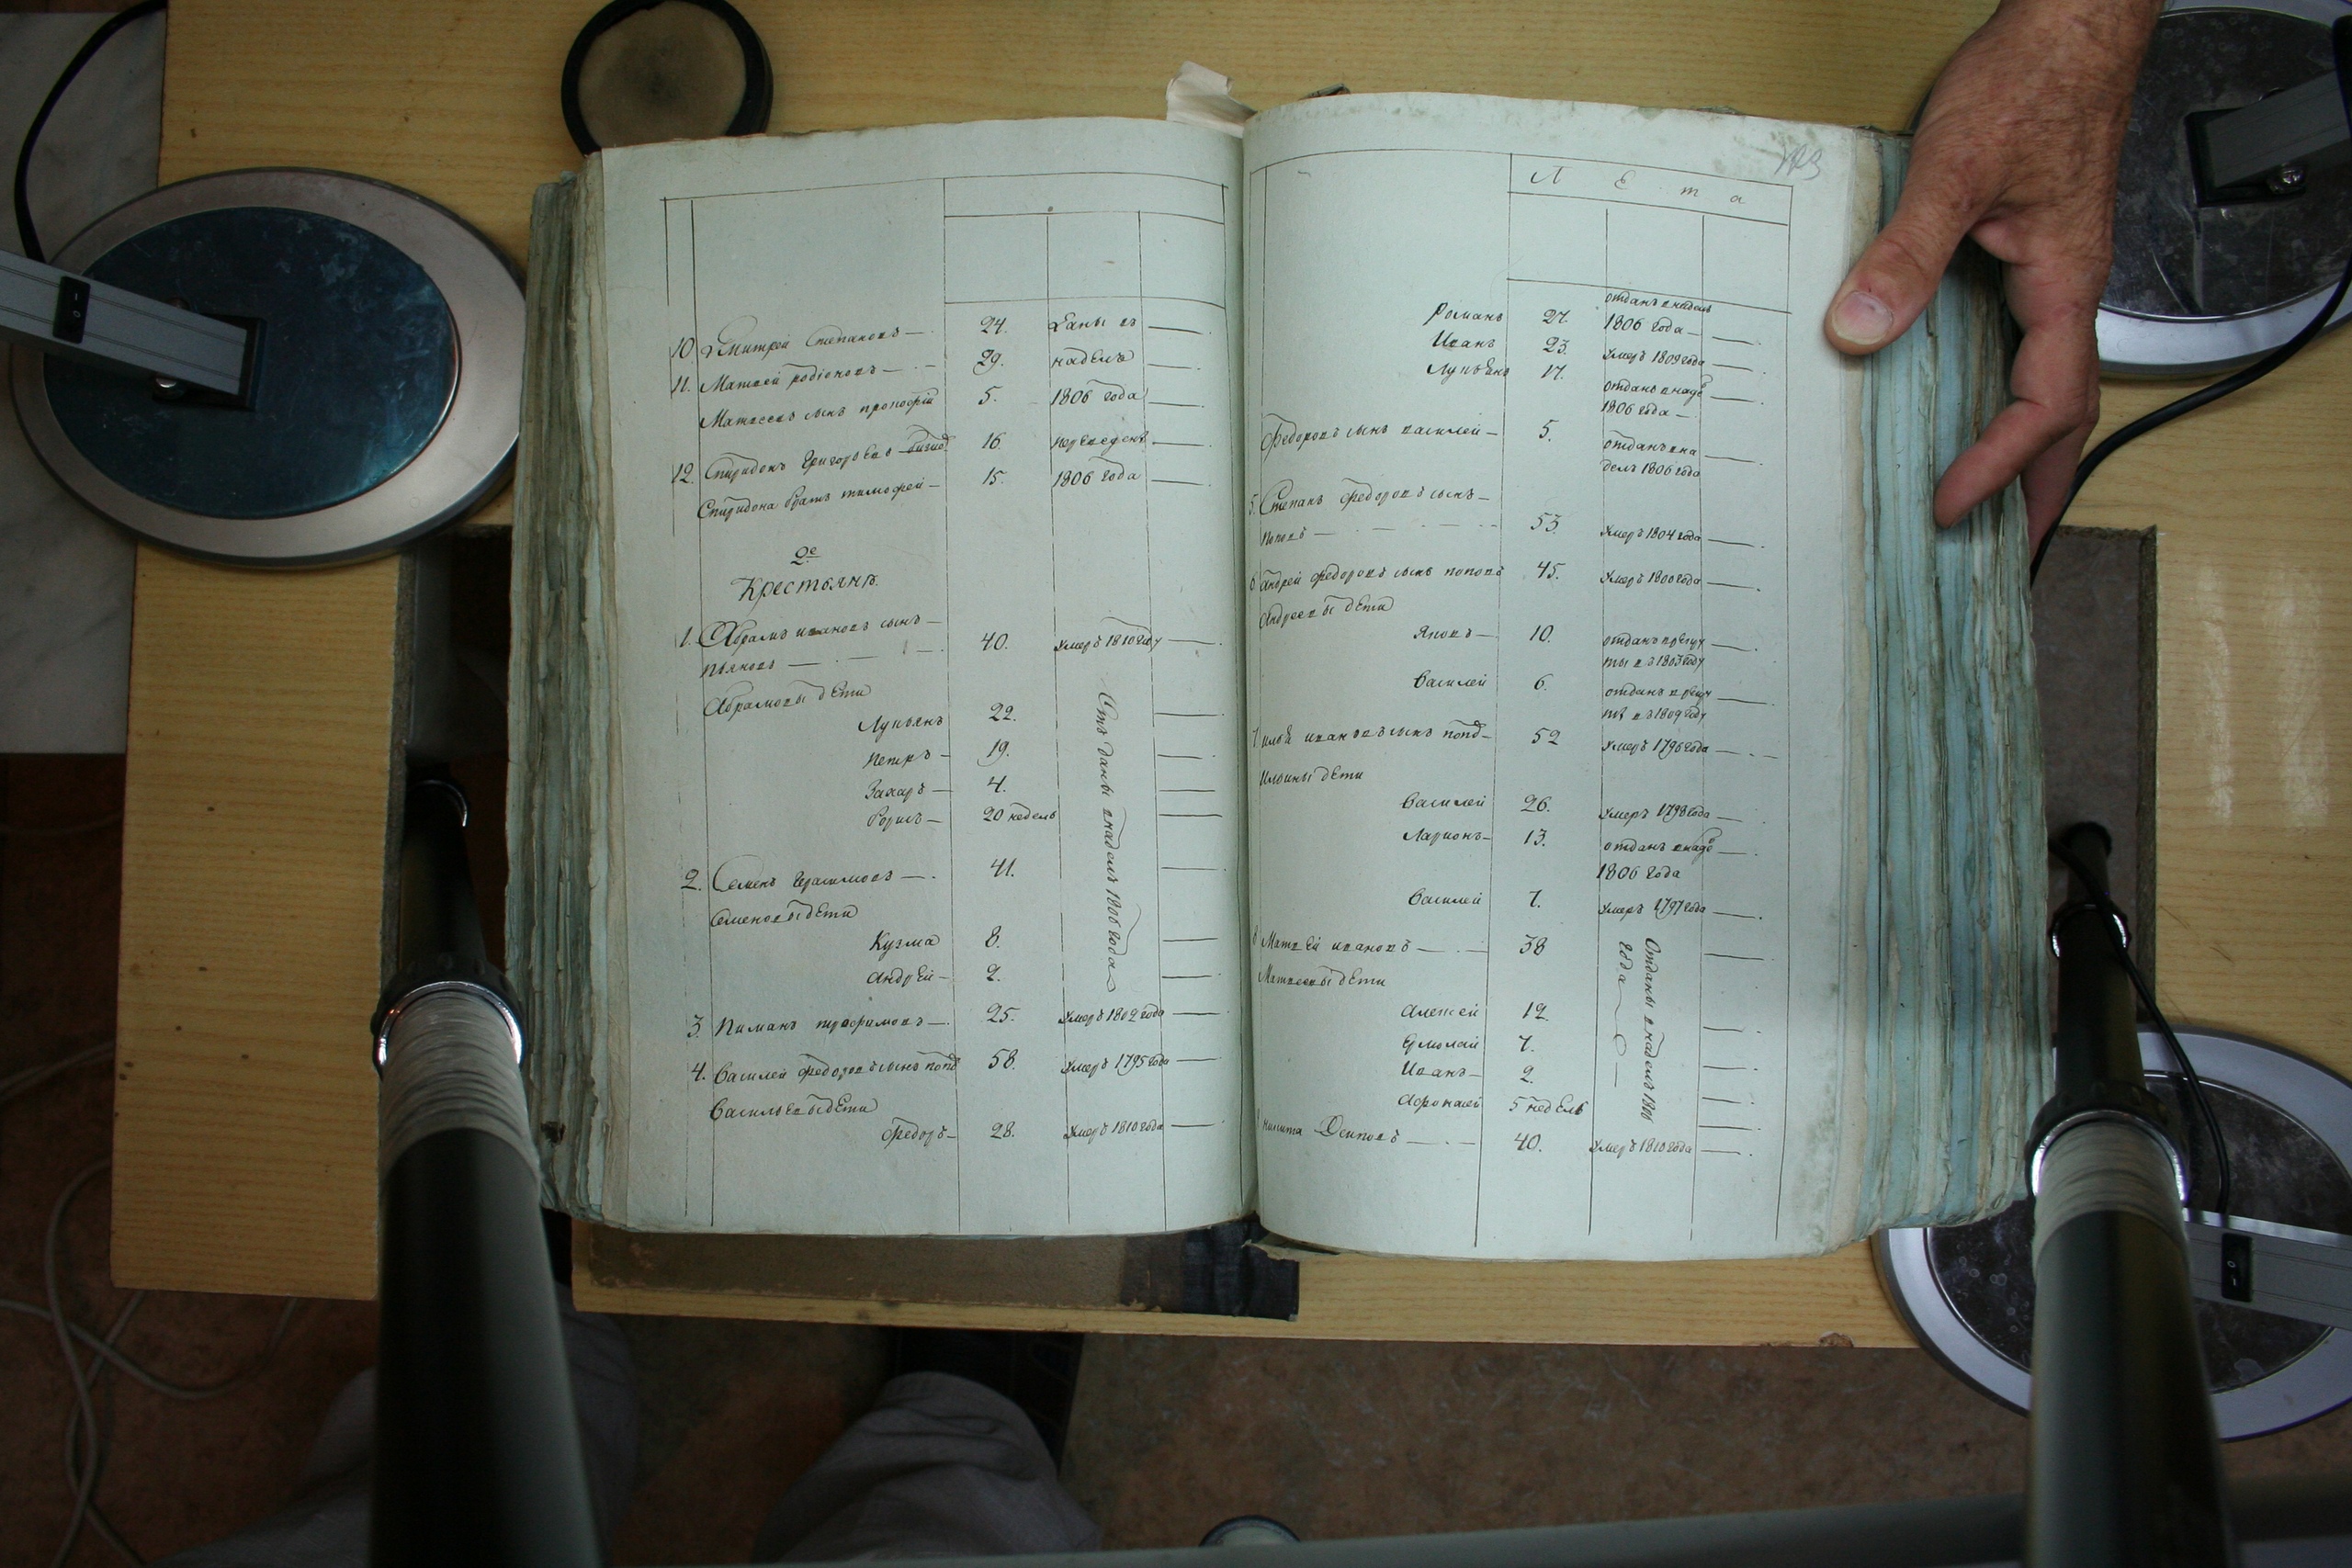 10 Дмитрей Степановъ — 24. даны въ —
11. Матвей родiоновъ — 29. наделъ —
Матвеевъ сынъ прокофiй 5. 1806 года —
12. Спиридонъ Григорьевъ 16. переведенъ —
Спиридона братъ тимофей — 15. 1806 года —
2е
Крестьянъ.
1. Абрамъ ивановъ сынъ —
пьяновъ — 40. умеръ 1810 году —
Абрамовы дети
Лупьянъ 22. —
петръ — 19. —
Захаръ — 4. —
борисъ — 20 недель —
Отданы внаделъ 1806 года
2. Семенъ Герасимовъ — 41. —
Семеновы дети
Кузма 8. —
андрей — 2. —
3. Пиманъ трофимовъ — 25. умеръ 1802 года —
4. Василей федоровъ сынъ попо 58. умеръ 1795 года —
Васильевы дети
федоръ — 28. умеръ 1810 года —
Л Ѣ т а
отданъ внаделъ
Романъ 27. 1806 года —
Иванъ 23. умеръ 1809 года —
Лупьянъ 17. отданъ внаде —
1806 года —
федоровъ сынъ василей — 5. отданъ вна —
делъ 1806 года
5. Степанъ федоровъ сынъ —
поповъ — 53. умеръ 1804 года —
6 андрей федоровъ сынъ поповъ 45. умеръ 1800 года —
андреевы дети
Яковъ — 10. отданъ врекру —
ты въ 1803 году
Василей 6. отданъ врекру —
ты въ 1809 году
7 илья ивановъ сынъ попо — 52 умеръ 1796 года —
ильины дети
Василей 26. умеръ 1798 года —
Ларионъ — 13. отданъ внаде —
1806 года
Василей 7. умеръ 1797 года —
8 Матвей ивановъ — 38 —
Матвеевы дети
Алексей 12. —
Ермолай 7. —
Иванъ — 2. —
Афонасей 5 недель —
Отданы внаделъ 1806
года —
никита Осиповъ — 40. умеръ 1810 года —